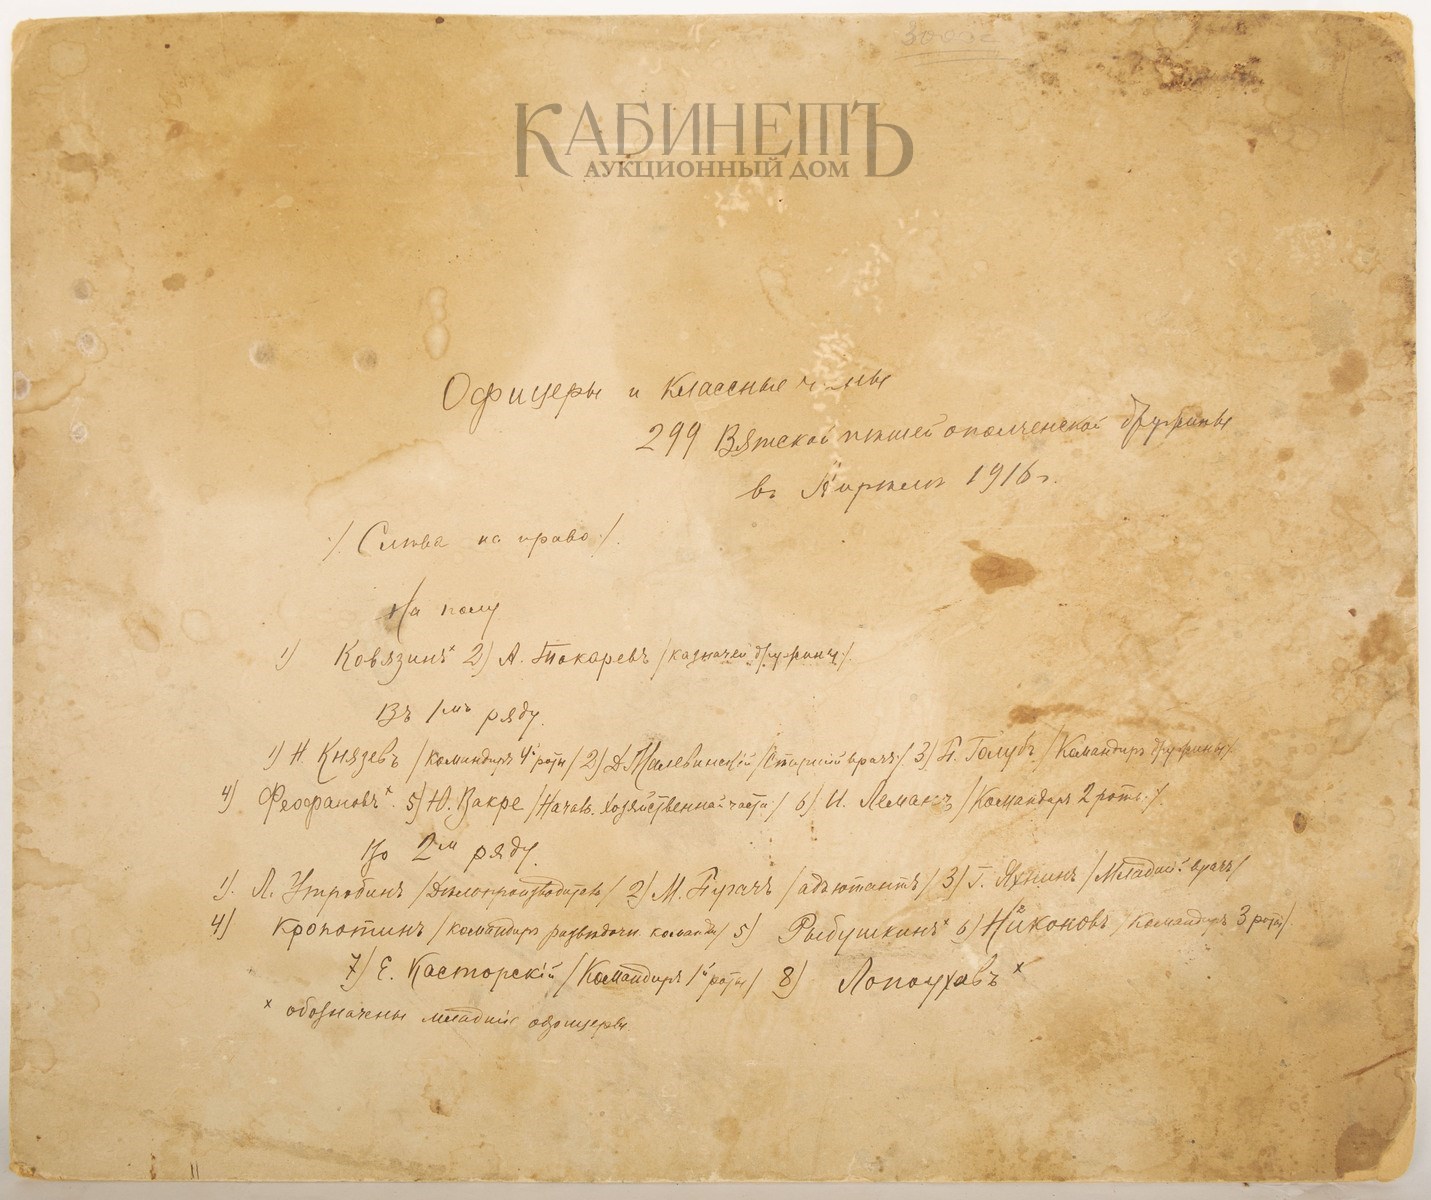 3000
КАБИНЕТЪ
АУКЦИОННЫЙ ДОМ
Офицеры и классные чины
299 Вятской пешей ополченской дружины
въ Апреле 1916 г.
/ Слева на право /.
На полу
1) Ковязинъ x 2) А. Токаревъ /казначей дружины/.
Въ 1мъ ряду.
1) Н. Князевъ /командиръ 4й роты/ 2) Д. Малевинскій /Старшій врачъ/ 3) Голубъ /Командиръ дружины/
4) Феофановъ x. 5) Ю. Вакре /Начал. Хозяйственной части/ 6) И. Леманъ /Командиръ 2 роты./
Во 2м ряду.
1). Л. Утробинъ /Делопроизводитель/ 2) М. Пугачъ /адъютантъ/ 3) Г. /Младшій врачъ/
4) Кропотинъ /командиръ разведочн. команды/ 5) Рыбушкинъ x 6) Никоновъ /Командиръ 3 роты/
7) Е. Касторскій /Командиръ 1й роты/ 8) Лопоуховъ x
x обозначены младшіе офицеры.